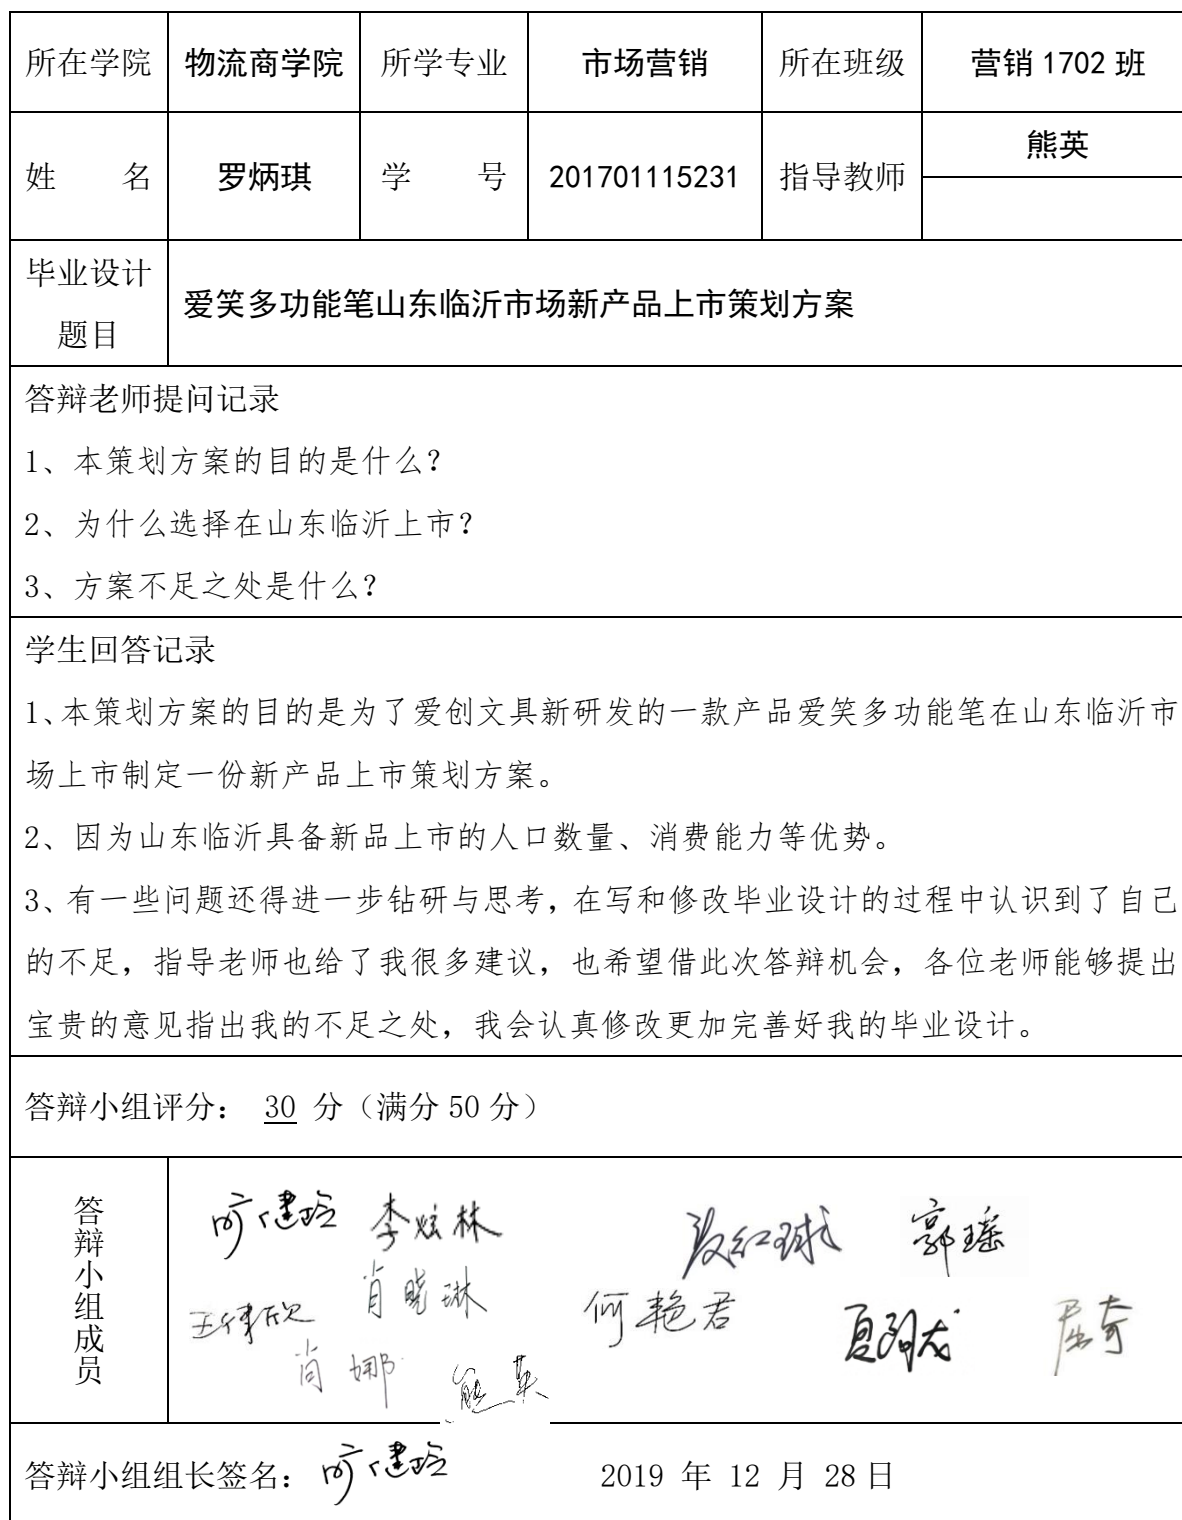 所在学院 物流商学院 所学专业 市场营销 所在班级 营销 1702 班
姓 名 罗炳琪 学 号 201701115231 指导教师 熊英
毕业设计
题目
爱笑多功能笔山东临沂市场新产品上市策划方案
答辩老师提问记录
1、本策划方案的目的是什么？
2、为什么选择在山东临沂上市？
3、方案不足之处是什么？
学生回答记录
1、本策划方案的目的是为了爱创文具新研发的一款产品爱笑多功能笔在山东临沂市
场上市制定一份新产品上市策划方案。
2、因为山东临沂具备新品上市的人口数量、消费能力等优势。
3、有一些问题还得进一步钻研与思考，在写和修改毕业设计的过程中认识到了自己
的不足，指导老师也给了我很多建议，也希望借此次答辩机会，各位老师能够提出
宝贵的意见指出我的不足之处，我会认真修改更加完善好我的毕业设计。
答辩小组评分： 30 分（满分 50 分）
答辩小组成员
李炫林 郭瑶
肖晓琳 何艳君 屈奇
肖娜 熊英
答辩小组组长签名： 2019 年 12 月 28 日